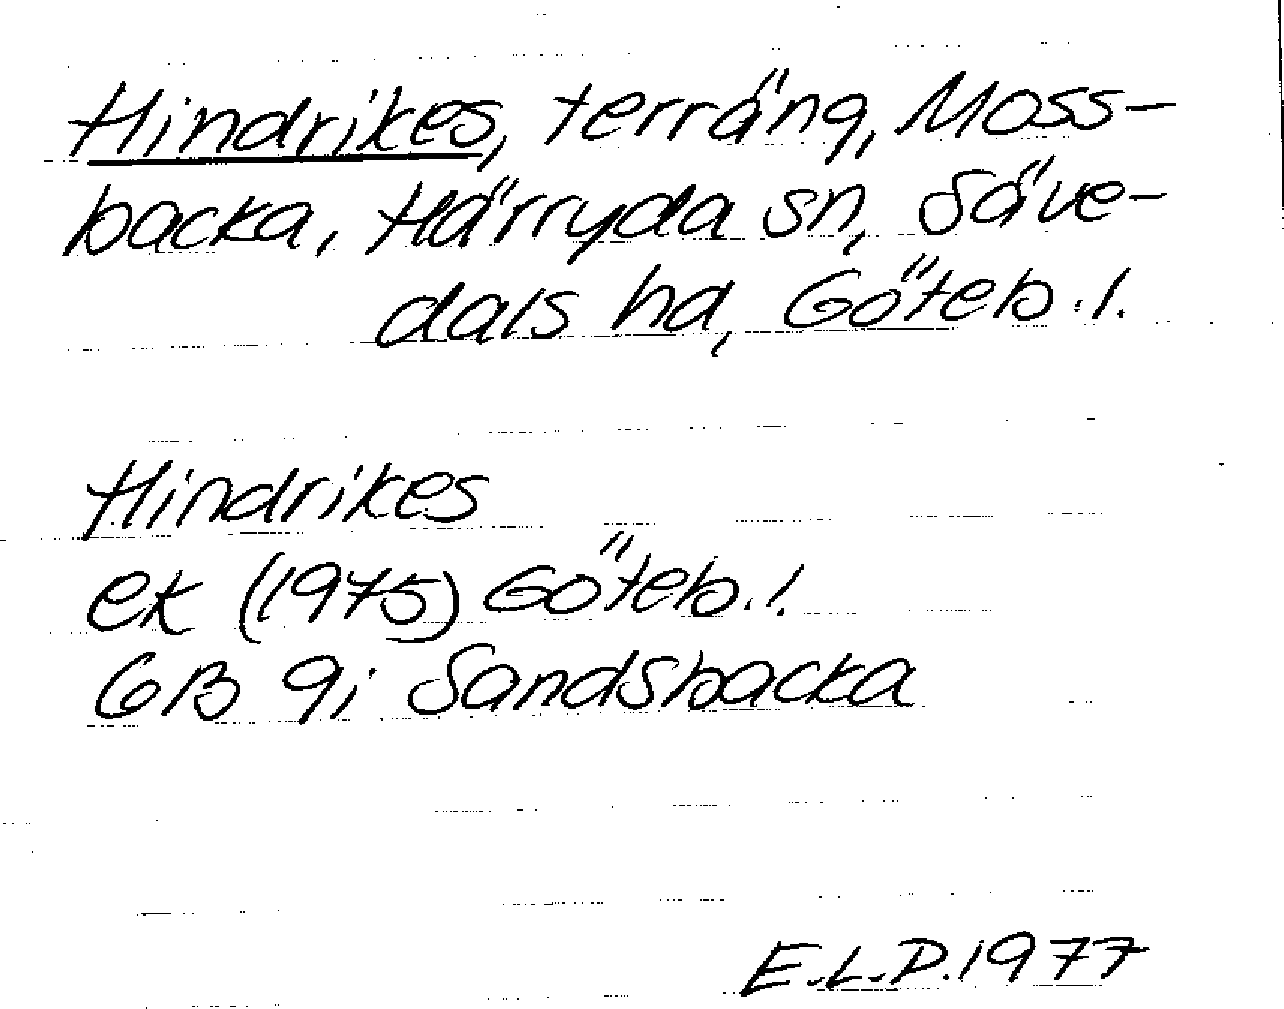 Hindrikes, terräng, Moss-
backa, Härryda sn, Säve-
dals hd, Göteb. l.
Hindrikes
ek (1975) Göteb. l.
6B 9i Sandsbacka
E.L.D. 1977